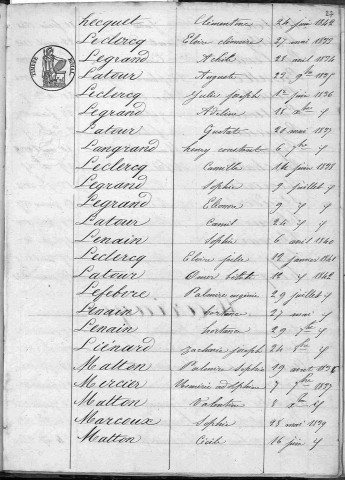 27
Lecquet Clémentine 24 juin 1842
Leclercq Eloire 27 mai 1833
Legrand Achile 28 1834
Latour Auguste 22 9bre 1835
Leclercq Jules Joseph 1er juin 1836
Legrand Adeline 18 xbre y
Latour Gustate 20 mai 1837
Langrand henry constant 6 7bre y
Leclercq Camille 14 juin 1838
Legrand Sophie 9 juillet y
Legrand Eléonore 9 y y
Latour Camil 24 y y
Lenain Sophie 6 avril 1840
Leclercq Eloire 12 janvier 1841
Latour Omer 12 y 1842
Lefebvre Palmire eugénie 29 juillet y
Lenain hortance 27 mai y
Lenain hortance 29 7bre y
Liénard Zacharie joseph 24 8bre y
Matton Palmire Sophie 19
Mercier adolphine 7 7bre 1837
Matton Valentin 8 xbre y
Marcoux Sophie 28 mai 1839
Matton Cécile 16 juin y